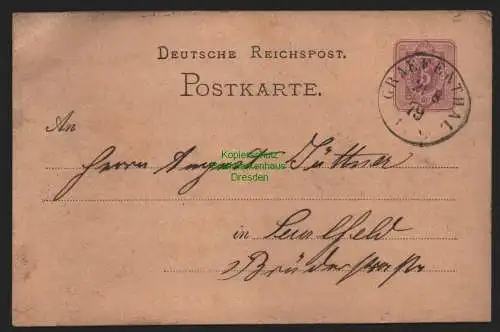 DEUTSCHE REICHSPOST.
POSTKARTE.
GRAEFENTHAL
79
5
An
Herrn August Füttner
Kopierschutz
Dresden
in Saalfeld
Brüderstraße